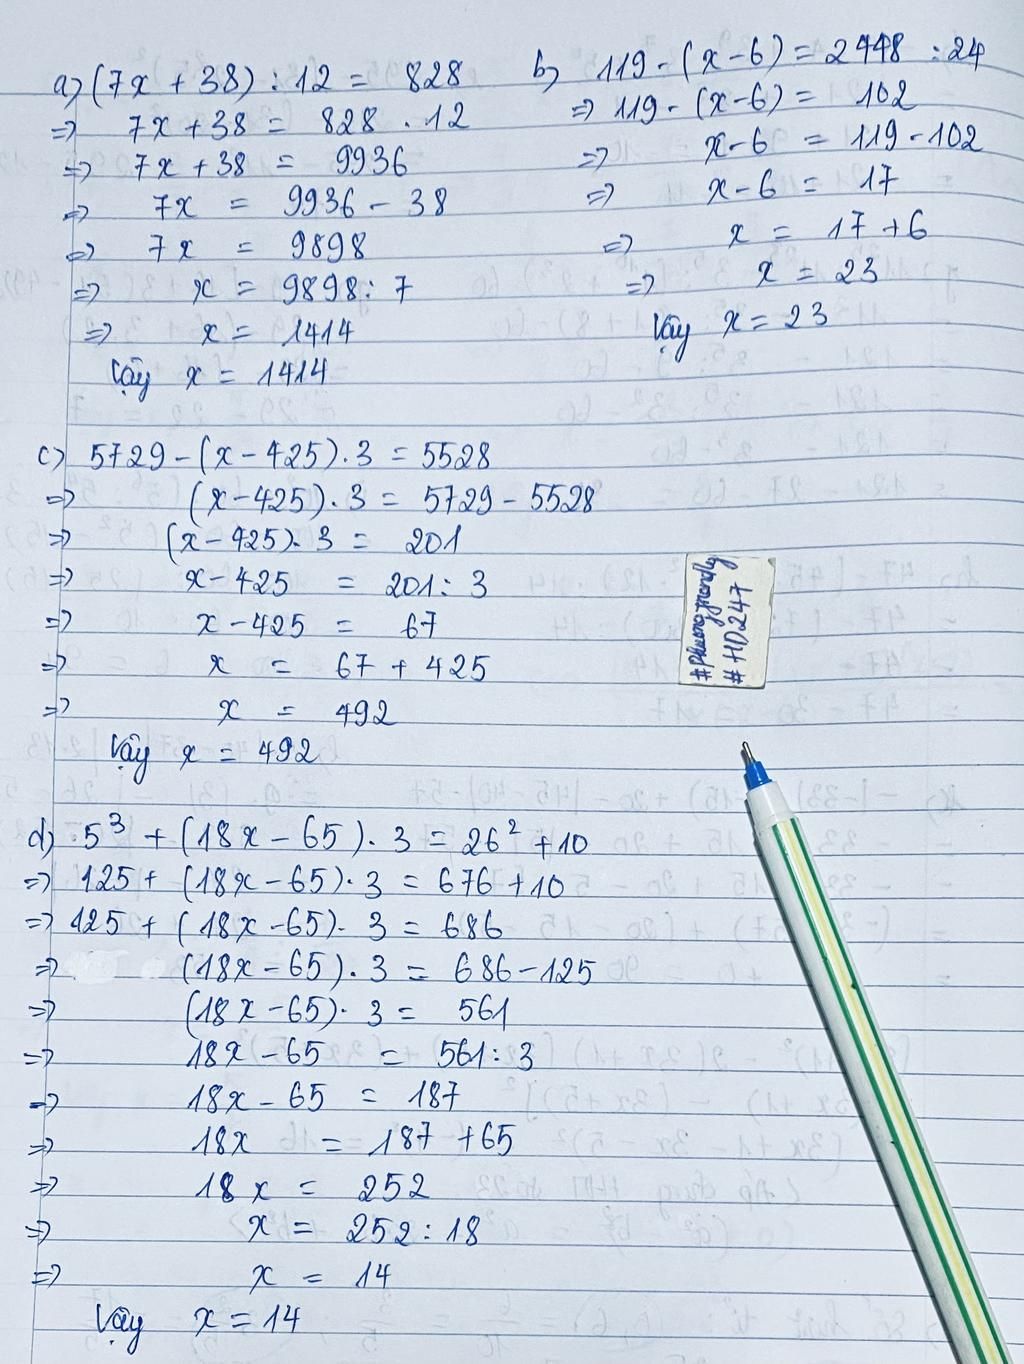 a) (7x + 38) : 12 = 828
=> 7x + 38 = 828 . 12
=> 7x + 38 = 9936
=> 7x = 9936 - 38
=> 7x = 9898
=> x = 9898 : 7
=> x = 1414
Vậy x = 1414
b) 119 - (x - 6) = 2448 : 24
=> 119 - (x - 6) = 102
=> x - 6 = 119 - 102
=> x - 6 = 17
=> x = 17 + 6
=> x = 23
Vậy x = 23
c) 5729 - (x - 425) . 3 = 5528
=> (x - 425) . 3 = 5729 - 5528
=> (x - 425) . 3 = 201
=> x - 425 = 201 : 3
=> x - 425 = 67
=> x = 67 + 425
=> x = 492
Vậy x = 492
#HD247
d) 5³ + (18x - 65) . 3 = 26² + 10
=> 125 + (18x - 65) . 3 = 676 + 10
=> 125 + (18x - 65) . 3 = 686
=> (18x - 65) . 3 = 686 - 125
=> (18x - 65) . 3 = 561
=> 18x - 65 = 561 : 3
=> 18x - 65 = 187
=> 18x = 187 + 65
=> 18x = 252
=> x = 252 : 18
=> x = 14
Vậy x = 14